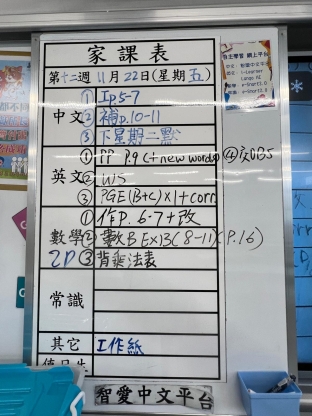 家課表
第十二週 11月22日(星期五)
中文 ① Ip.5-7
② 補p.10-11
③ 下星期一默
英文 ① PP P.9 (+new words) ④交OBS
② WS
③ PGE(B+C)×1+corr
數學 ① 作P.6-7+改
② 數B EX13(8-11)(P.16)
2D ③ 背乘法表
常識
其它 工作紙
值日生
智愛中文平台
自主學習 網上平台